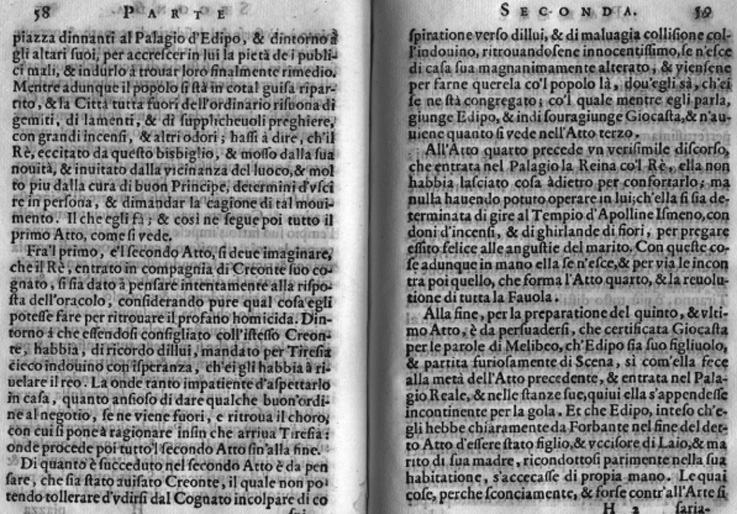 58 PARTE
piazza dinnanti al Palagio d'Edipo, & dintorno à
gli altari suoi, per accrescer in lui la pietà de i publi-
ci mali, & indurlo à trouar loro finalmente rimedio.
Mentre adunque il popolo si stà in cotal guisa ripar-
tito, & la Città tutta fuori dell'ordinario risuona di
gemiti, di lamenti, & di supplicheuoli preghiere,
con grandi incensi, & altri odori; hassi à dire, ch'il
Rè, eccitato da questo bisbiglio, & mosso dalla sua
nouità, & inuitato dalla vicinanza del luoco, & mol
to piu dalla cura di buon Principe, determini d'vsci
re in persona, & dimandar la cagione di tal moui-
mento. Il che egli fà; & così ne segue poi tutto il
primo Atto, come si vede.
Fra'l primo, e'l secondo Atto, si deue imaginare,
che il Rè, entrato in compagnia di Creonte suo co-
gnato, si sia dato à pensare intentamente alla rispo-
sta dell'oracolo, considerando pure qual cosa egli
potesse fare per ritrouare il profano homicida. Din-
torno à che essendosi consigliato coll'istesso Creon-
te, habbia, di ricordo dillui, mandato per Tiresia
cieco indouino con isperanza, ch'ei gli habbia à ri-
uelare il reo. La onde tanto impatiente d'aspettarlo
in casa, quanto ansioso di dare qualche buon'ordi-
ne al negotio, se ne viene fuori, e ritroua il choro,
con cui si pone à ragionare insin che arriua Tiresia:
onde procede poi tutto'l secondo Atto sin'alla fine.
Di quanto è succeduto nel secondo Atto è da pen
sare, che sia stato auisato Creonte, il quale non po-
tendo tollerare d'vdirsi dal Cognato incolpare di co
SECONDA. 59
spiratione verso dillui, & di maluagia collisione col-
l'indouino, ritrouandosene innocentissimo, se n'esce
di casa sua magnanimamente alterato, & viensene
per farne querela co'l popolo là, dou'egli sà, ch'ei
se ne stà congregato; co'l quale mentre egli parla,
giunge Edipo, & indi souragiunge Giocasta, & n'au-
uiene quanto si vede nell'Atto terzo.
All'Atto quarto precede vn verisimile discorso,
che entrata nel Palagio la Reina co'l Rè, ella non
habbia lasciato cosa àdietro per confortarlo; ma
nulla hauendo potuto operare in lui; ch'ella si sia de-
terminata di gire al Tempio d'Apolline Ismeno, con
doni d'incensi, & di ghirlande di fiori, per pregare
essito felice alle angustie del marito. Con queste co-
se adunque in mano ella se n'esce, & per via le incon
tra poi quello, che forma l'Atto quarto, & la reuolu-
tione di tutta la Fauola.
Alla fine, per la preparatione del quinto, & vlti-
mo Atto, è da persuadersi, che certificata Giocasta
per le parole di Melibeo, ch'Edipo sia suo figliuolo,
& partita furiosamente di Scena, si com'ella fece
alla metà dell'Atto precedente, & entrata nel Pala-
gio Reale, & nelle stanze sue, quiui ella s'appendesse
incontinente per la gola. Et che Edipo, inteso ch'e-
gli hebbe chiaramente da Forbante nel fine del det-
to Atto d'essere stato figlio, & vccisore di Laio, & ma
rito di sua madre, ricondottosi parimente nella sua
habitatione, s'accecasse di propia mano. Le quai
cose, perche sconciamente, & forse contr'all'Arte si
H 2 saria-